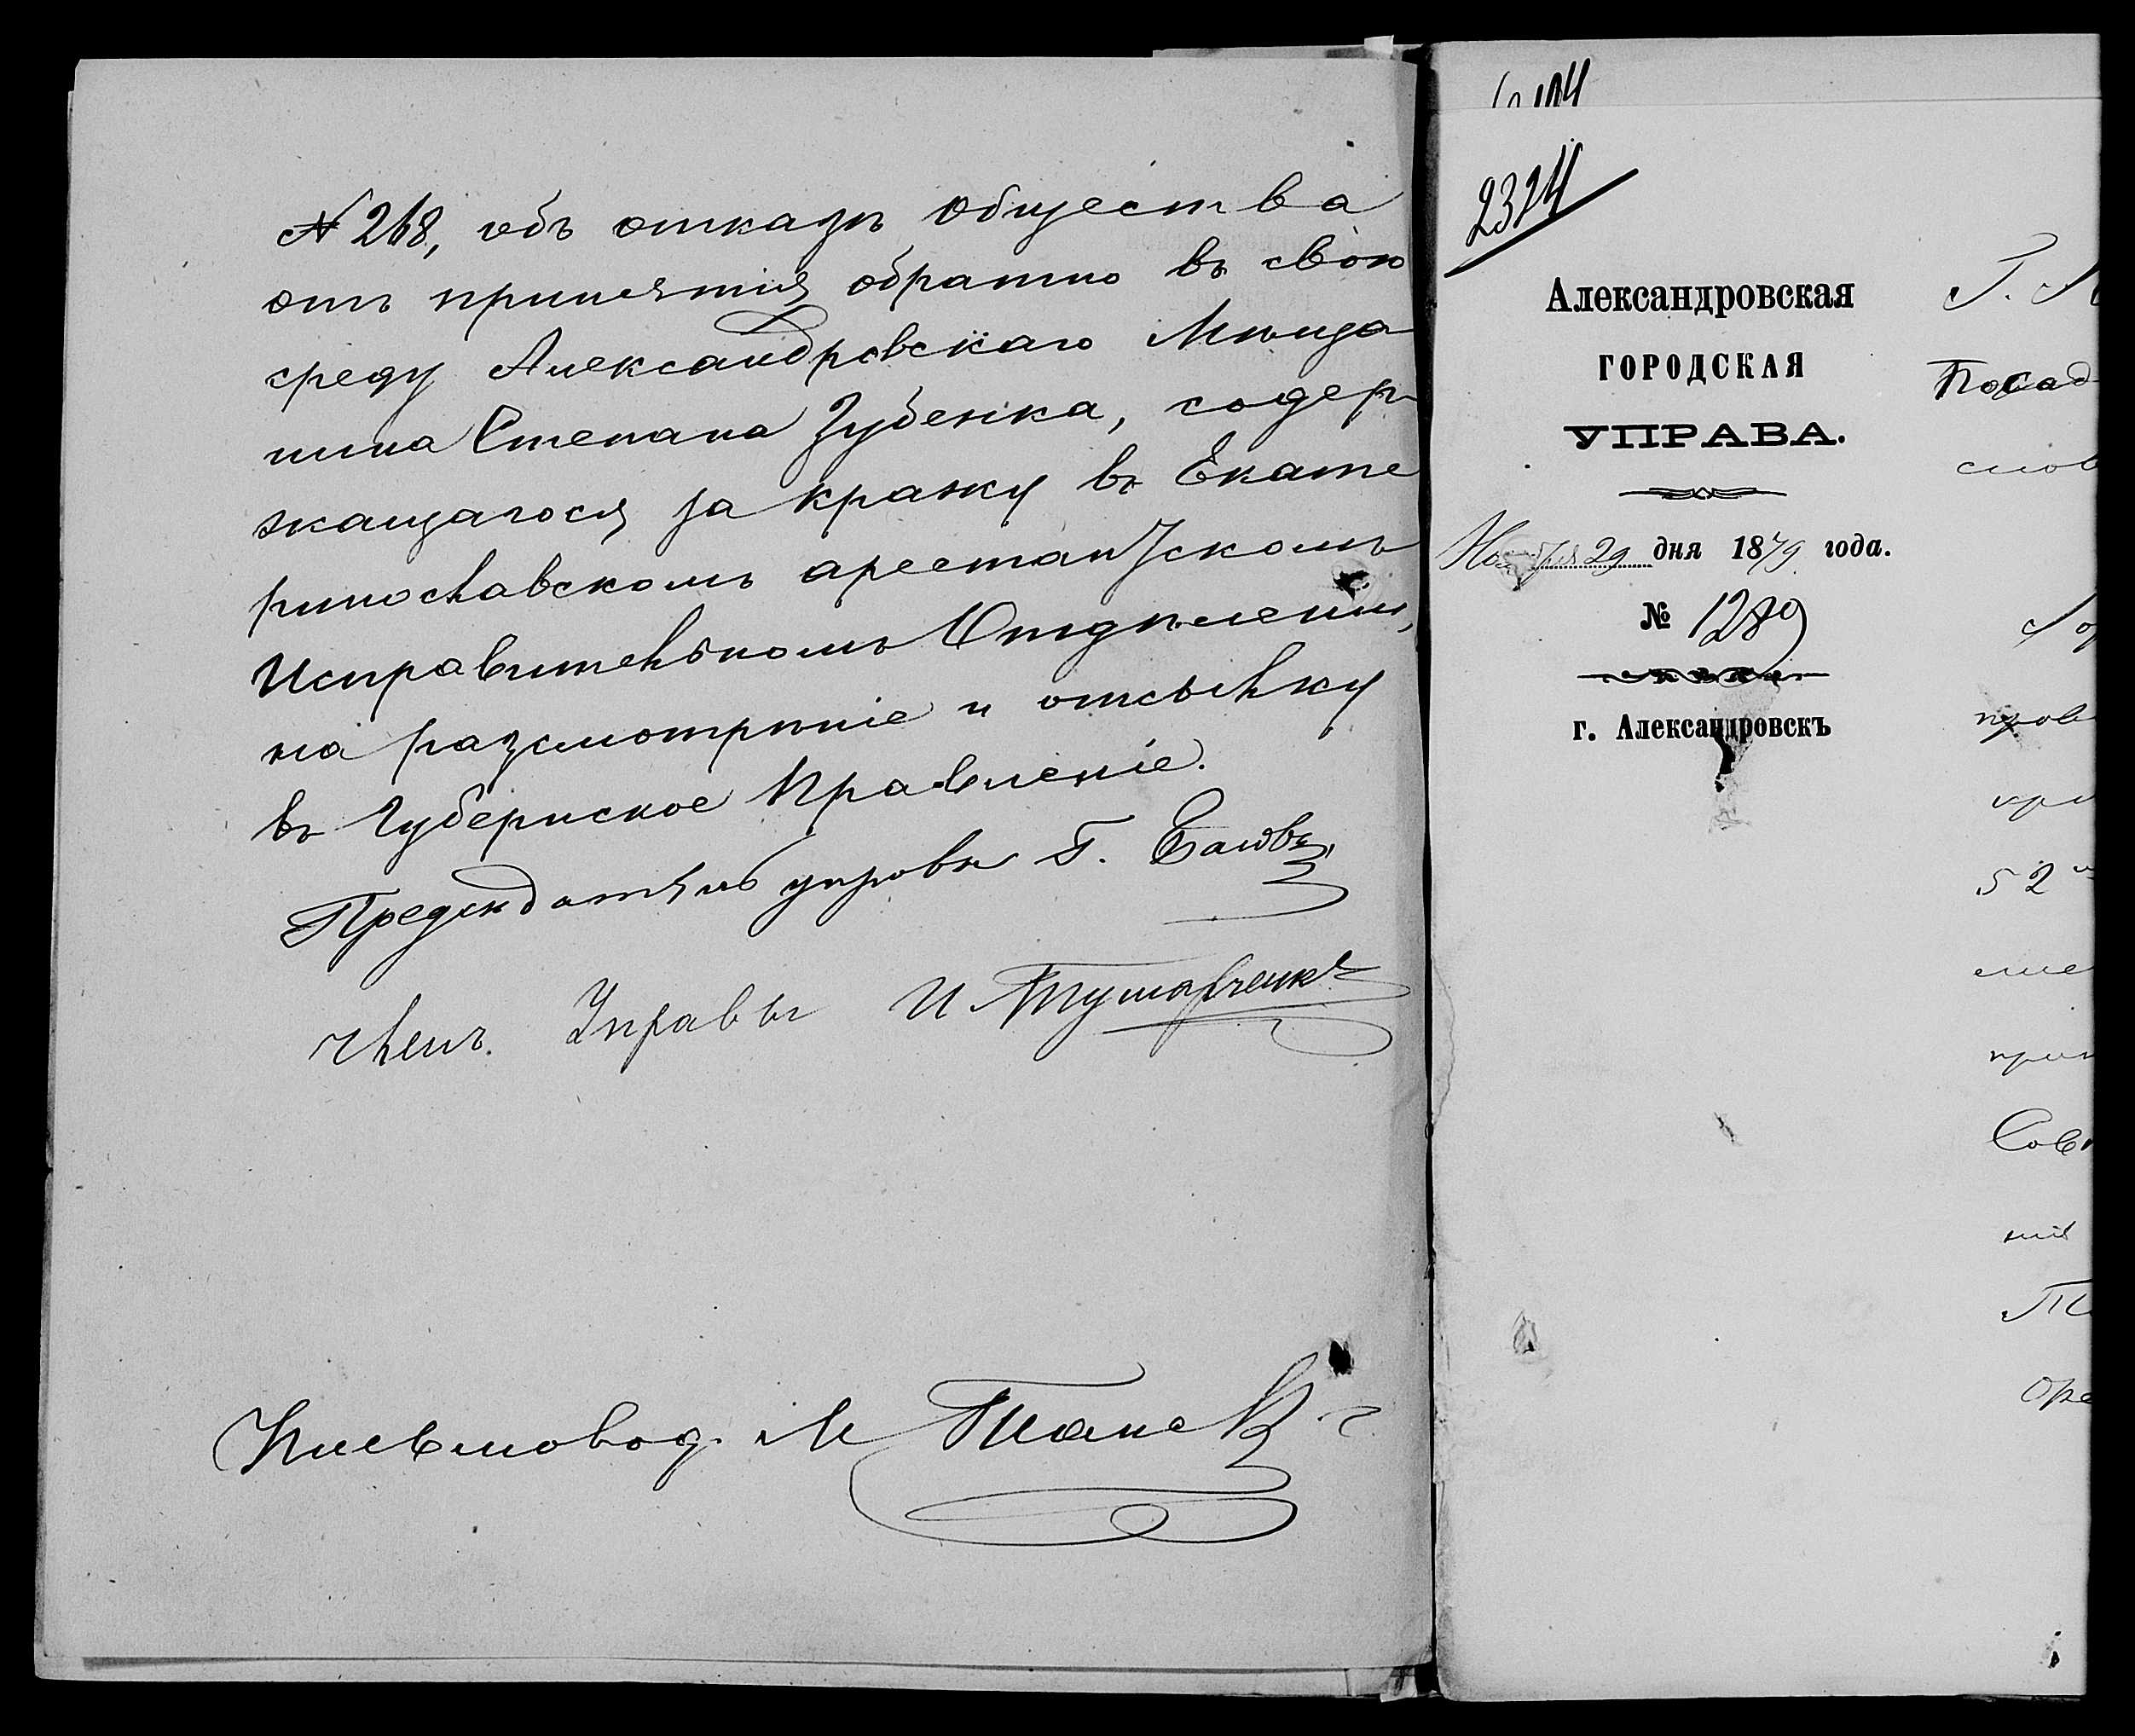 № 268, объ отказѣ Общества
отъ принятія обратно въ свою
среду Александровскаго Мѣща-
нина Степана Зубенка, содер-
жащагося за кражу въ Екате
ринославскомъ арестантскомъ
Исправительномъ Отдѣленіи,
на разсмотрѣніе и отсылку
въ Губернское Правленіе.
Предсѣдатель управы Г.
Членъ Управы И
Письмовод. М
2324
Александровская
ГОРОДСКАЯ
УПРАВА.
Ноября 29 дня 1879 года.
№ 1289
г. Александровскъ
Г.
Посад
слов
пров
при
52
прин
Сов
нія